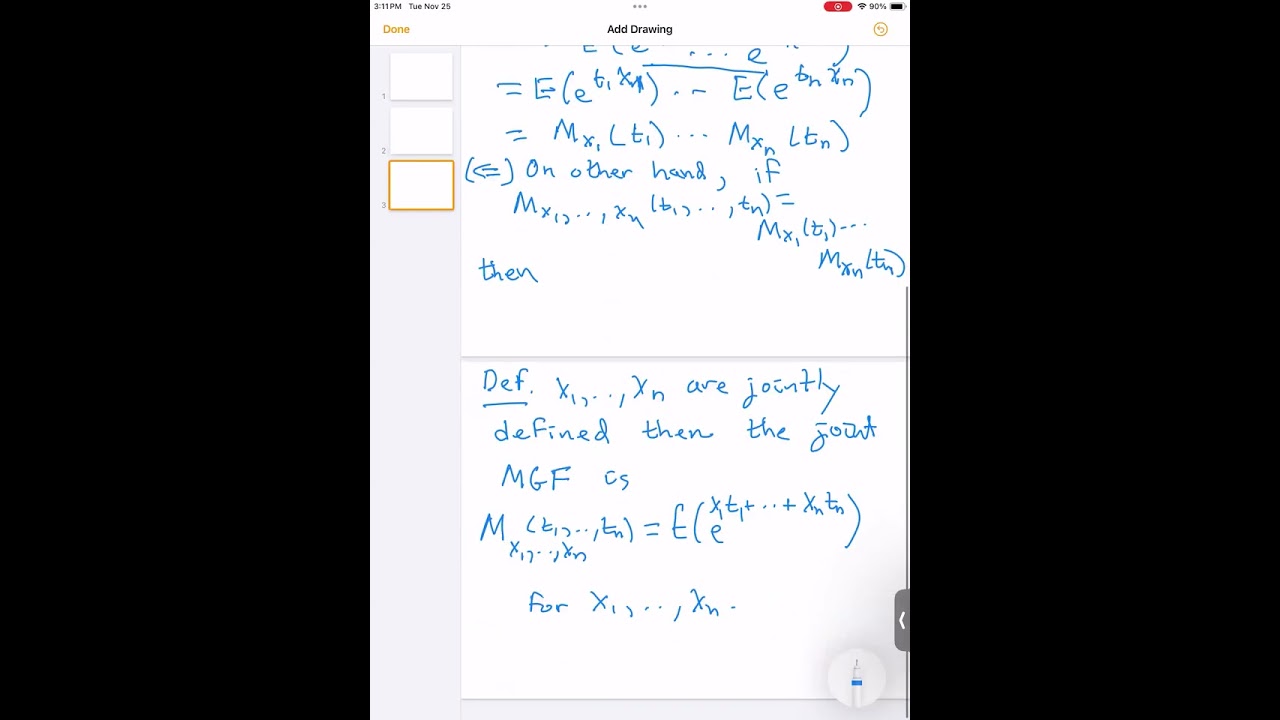 3:11 PM Tue Nov 25
90%
Done
Add Drawing
1
2
3
= E(e^{t_1 X_1}) ... E(e^{t_n X_n})
= M_{X_1}(t_1) ... M_{X_n}(t_n)
(⇐) On other hand, if
M_{X_1,..,X_n}(t_1,..,t_n) =
M_{X_1}(t_1)...
M_{X_n}(t_n)
then
Def. X_1,..,X_n are jointly
defined then the joint
MGF is
M_{X_1,..,X_n}(t_1,..,t_n) = E(e^{X_1t_1+..+X_nt_n})
for X_1,..,X_n.